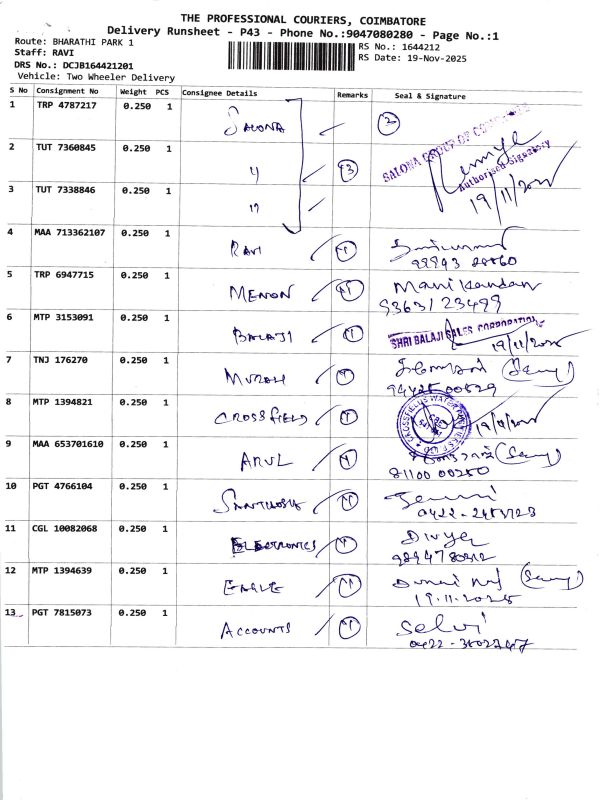 THE PROFESSIONAL COURIERS, COIMBATORE
Delivery Runsheet - P43 - Phone No.:9047080280 - Page No.:1
Route: BHARATHI PARK 1
RS No.: 1644212
Staff: RAVI
RS Date: 19-Nov-2025
DRS No.: DCJB164421201
Vehicle: Two Wheeler Delivery
S No Consignment No Weight PCS Consignee Details Remarks Seal & Signature
1 TRP 4787217 0.250 1 SALONA
SALONA GROUP OF
Authorised Signatory
2 TUT 7360845 0.250 1 4 3
3 TUT 7338846 0.250 1 19/11/2025
4 MAA 713362107 0.250 1 RAVI
5 TRP 6947715 0.250 1 MENON Manikandan
9363123499
6 MTP 3153091 0.250 1 BALAJI SHRI BALAJI SALES CORPORATION
19/11/2025
7 TNJ 176270 0.250 1 MURALI
8 MTP 1394821 0.250 1 CROSSFIELD
9 MAA 653701610 0.250 1 ARUL
81100 00250
10 PGT 4766104 0.250 1 SANTHOSH
11 CGL 10082068 0.250 1 ELECTRONICS Divya
12 MTP 1394639 0.250 1 EAGLE
19.11.2025
13 PGT 7815073 0.250 1 ACCOUNTS Selvi